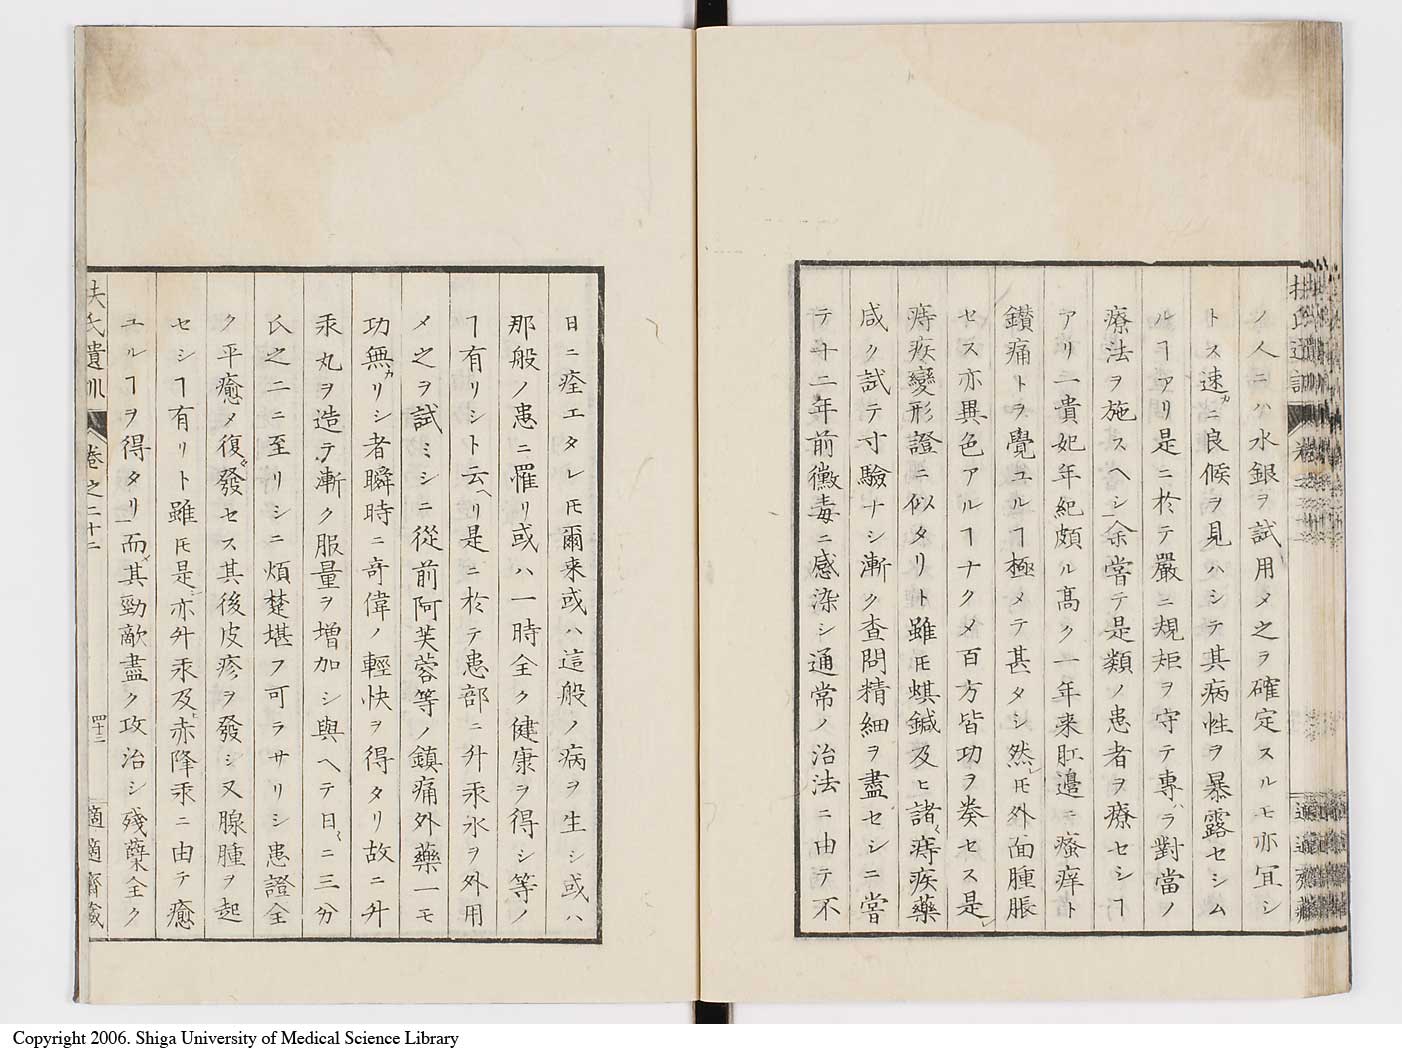 ノ人ニハ水銀ヲ試用〆之ヲ確定スルモ亦宜シ
トス速カニ良候ヲ見ハシテ其病性ヲ暴露セシム
ルヿアリ是ニ於テ嚴ニ規矩ヲ守テ專ハラ對當ノ
療法ヲ施スヘシ余嘗テ是類ノ患者ヲ療セシヿ
アリ一貴妃年紀頗ル髙ク一年来肛邊ニ瘙痒ト
鑚痛トヲ覺ユルヿ極メテ甚タシ然レ𪜈外面腫脹
セス亦異色アルヿナク〆百方皆功ヲ奏セス是レ
痔疾變形證ニ似タリト雖𪜈蜞鍼及ヒ諸〱痔疾藥
咸ク試テ寸驗ナシ漸ク査問精細ヲ盡セシニ嘗
テ十二年前黴毒ニ感染シ通常ノ治法ニ由テ不
日ニ痊エタレ𪜈爾来或ハ這般ノ病ヲ生シ或ハ
那般ノ患ニ罹リ或ハ一時全ク健康ヲ得シ等ノ
ヿ有リシト云ヘリ是ニ於テ患部ニ升汞水ヲ外用
メ之ヲ試ミシニ從前阿芙蓉等ノ鎮痛外藥一モ
功無カリシ者瞬時ニ奇偉ノ輕快ヲ得タリ故ニ升
汞丸ヲ造テ漸ク服量ヲ増加シ與ヘテ日〱ニ三分
氏之二ニ至リシニ煩楚堪フ可ラサリシ患證全
ク平癒〆復ビ發セス其後皮疹ヲ發シ又腺腫ヲ起
セシヿ有リト雖𪜈是亦升汞及ヒ赤降汞ニ由テ癒
ユルヿヲ得タリ而〆其勁敵盡ク攻治シ殘孽全ク
扶氏遺訓 卷之二十二 四十三 適適齋藏